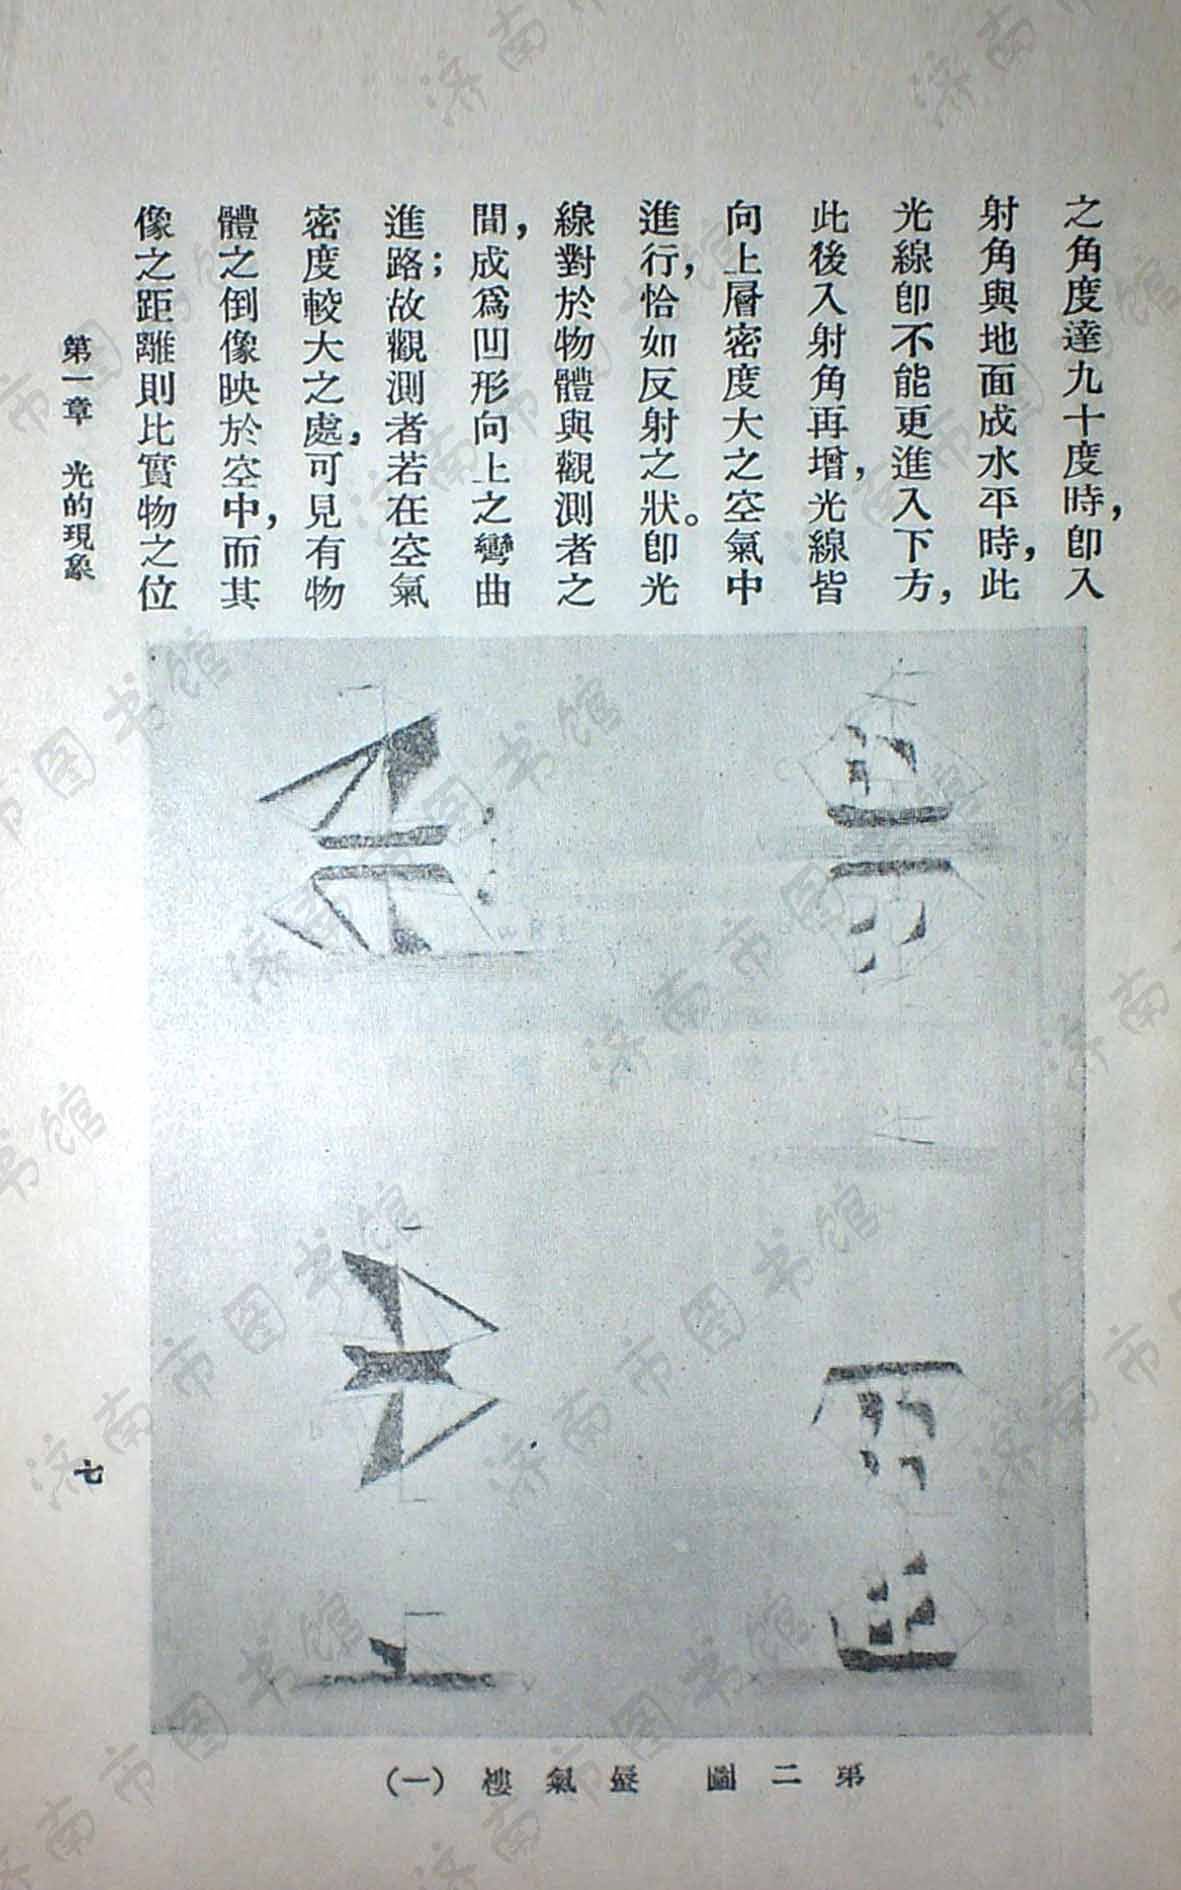 之角度達九十度時，卽入
射角與地面成水平時，此
光線卽不能更進入下方，
此後入射角再增，光線皆
向上層密度大之空氣中
進行，恰如反射之狀。卽光
線對於物體與觀測者之
間，成爲凹形向上之彎曲
進路；故觀測者若在空氣
密度較大之處，可見有物
體之倒像映於空中，而其
像之距離則比實物之位
第一章 光的現象
七
第二圖 蜃氣樓（一）
济南市图书馆